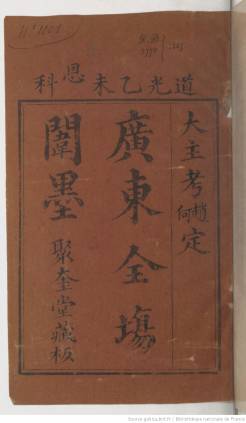 道光乙未恩科
大主考趙何定
廣東全場
闈墨
聚奎堂藏板
Source gallica.bnf.fr / Bibliothèque nationale de France